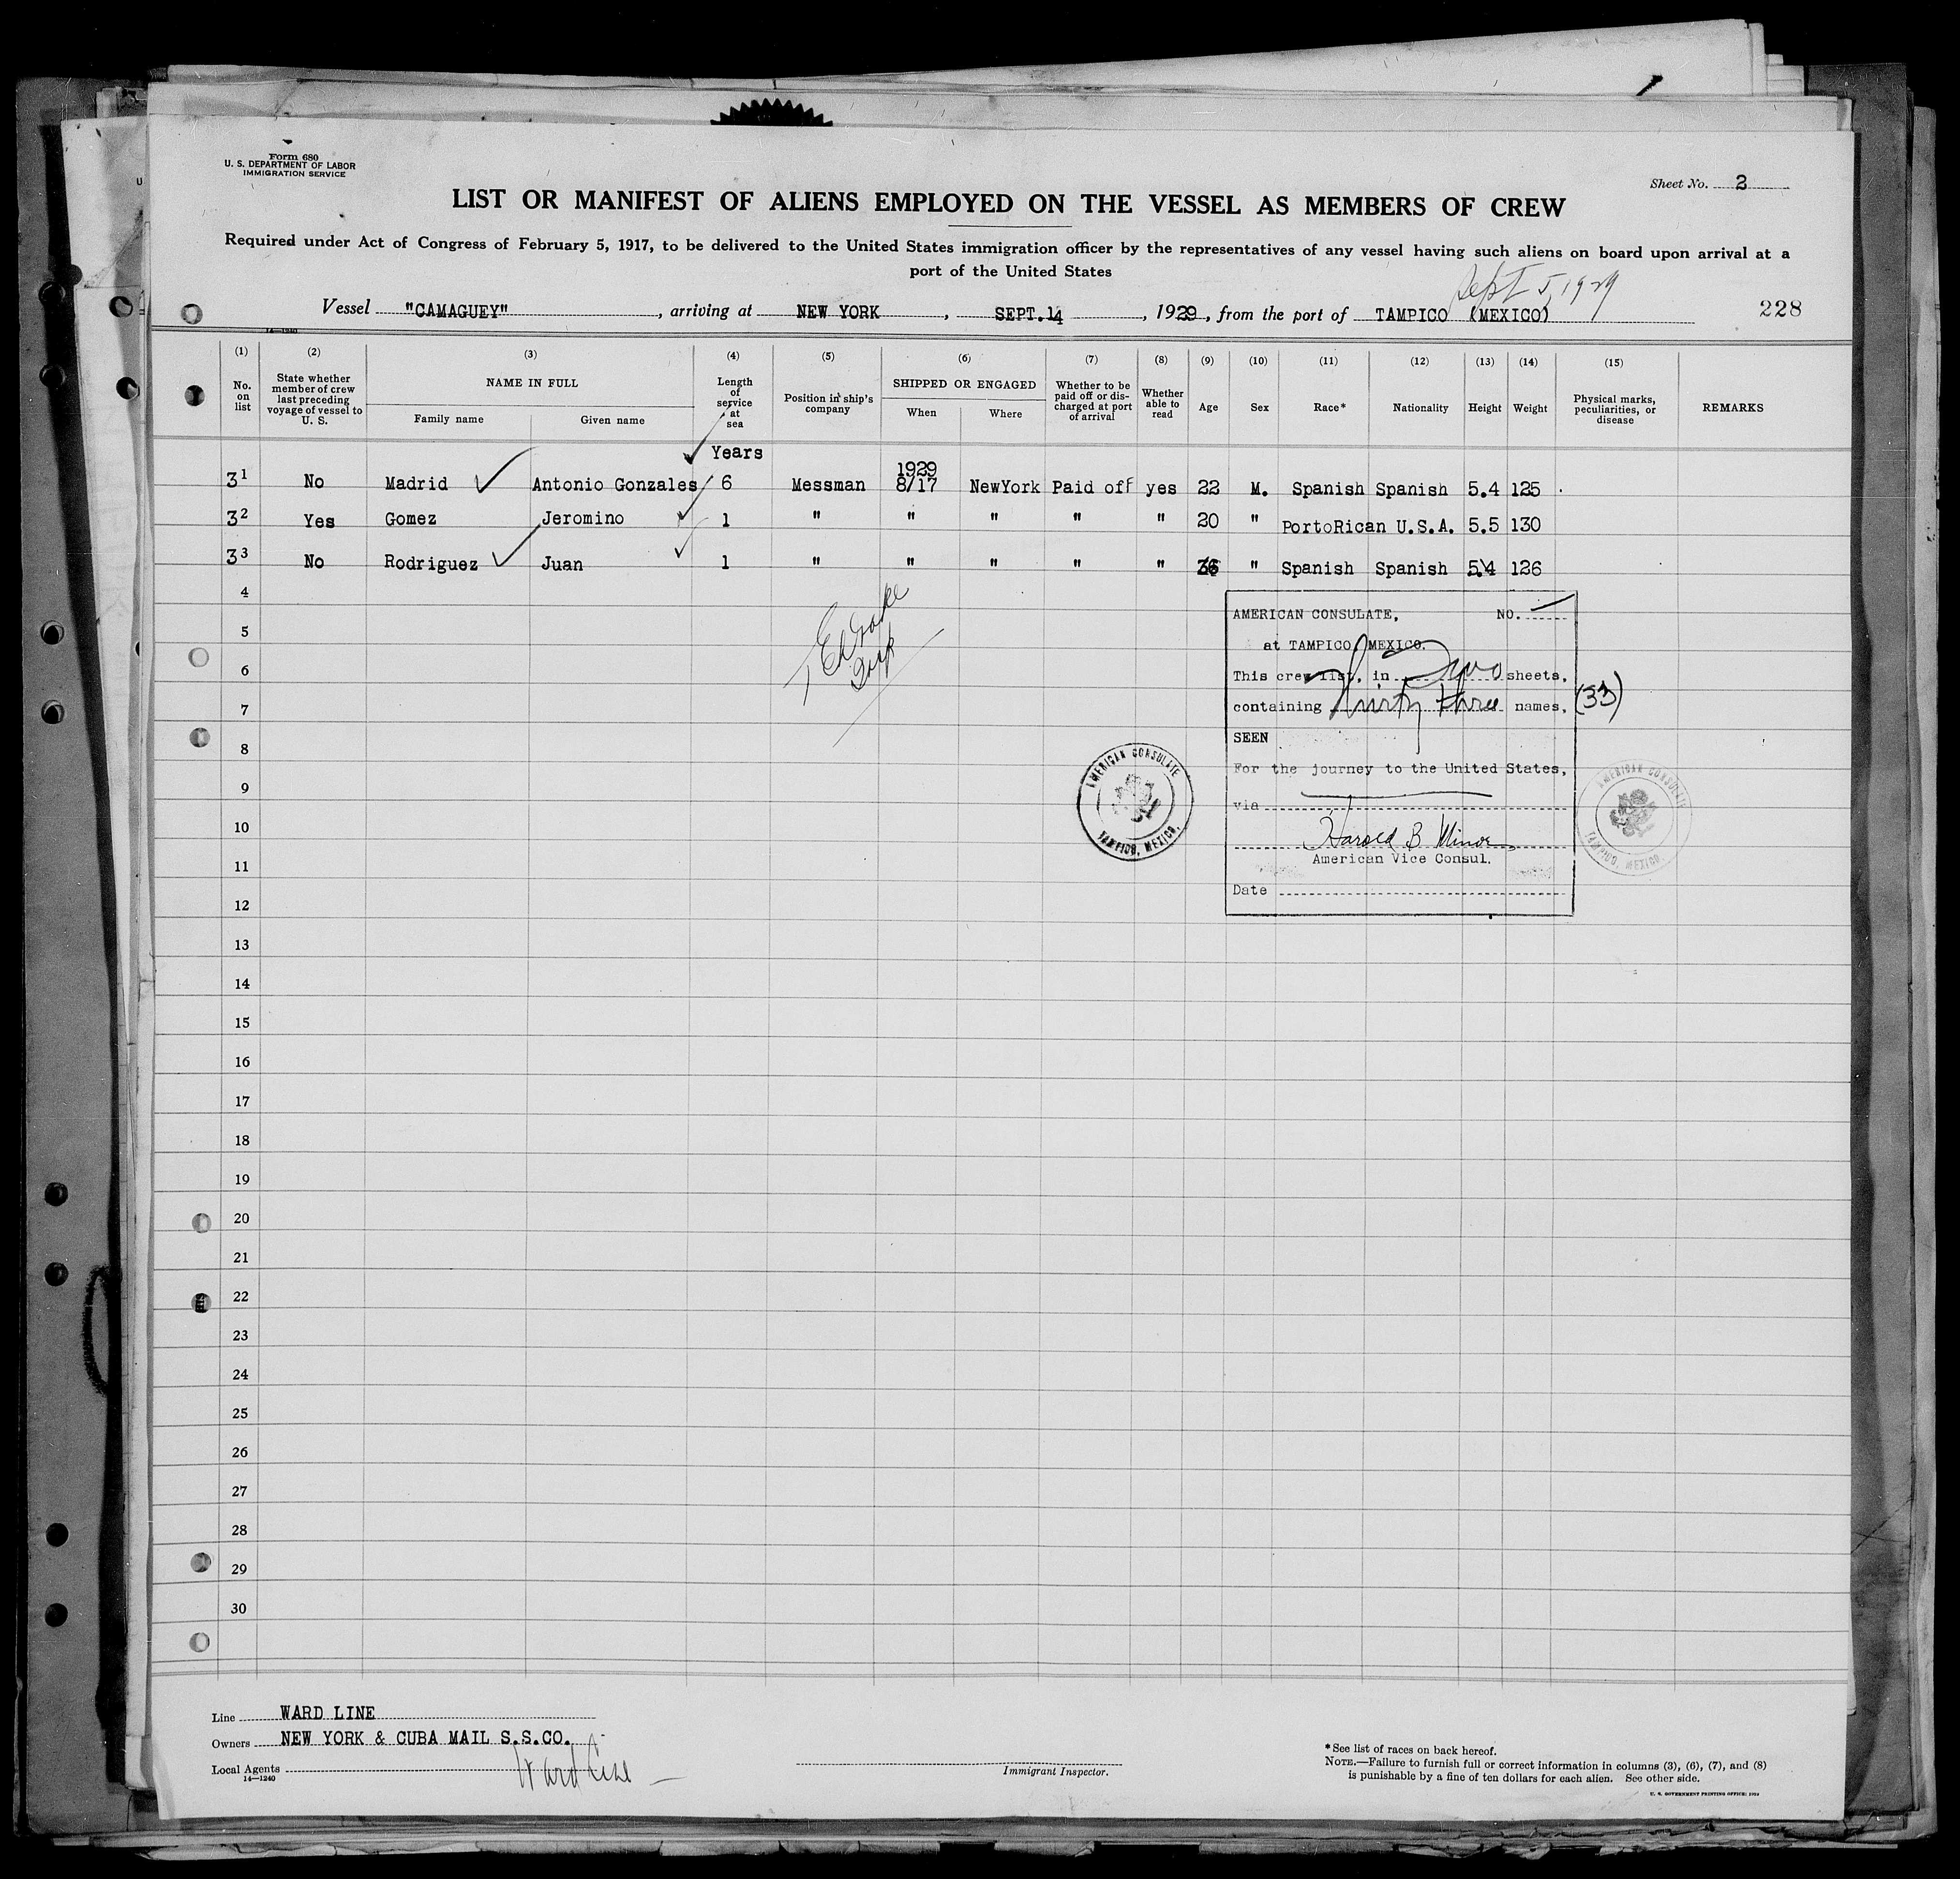 Form 680
U. S. DEPARTMENT OF LABOR
IMMIGRATION SERVICE
Sheet No. 2
LIST OR MANIFEST OF ALIENS EMPLOYED ON THE VESSEL AS MEMBERS OF CREW
Required under Act of Congress of February 5, 1917, to be delivered to the United States immigration officer by the representatives of any vessel having such aliens on board upon arrival at a
port of the United States
Sept 5, 1929
Vessel "CAMAGUEY", arriving at NEW YORK, SEPT.14, 1929, from the port of TAMPICO (MEXICO) 228
14—1240
(1) (2) (3) (4) (5) (6) (7) (8) (9) (10) (11) (12) (13) (14) (15)
No. on list
State whether member of crew last preceding voyage of vessel to U. S.
NAME IN FULL
Family name Given name
Length of service at sea
Position in ship's company
SHIPPED OR ENGAGED
When Where
Whether to be paid off or discharged at port of arrival
Whether able to read
Age Sex Race* Nationality Height Weight
Physical marks, peculiarities, or disease
REMARKS
Years
1929
31 No Madrid Antonio Gonzales 6 Messman 8/17 NewYork Paid off yes 22 M. Spanish Spanish 5.4 125
32 Yes Gomez Jeromino 1 " " " " " 20 " PortoRican U.S.A. 5.5 130
33 No Rodriguez Juan 1 " " " " " 36 " Spanish Spanish 5.4 126
4
5
6
7
8
9
10
11
12
13
14
15
16
17
18
19
20
21
22
23
24
25
26
27
28
29
30
AMERICAN CONSULATE, NO.
at TAMPICO, MEXICO.
This crew list, in Two sheets,
containing Thirty three names, (33)
SEEN
For the journey to the United States,
via
Harold B Minor
American Vice Consul.
Date
AMERICAN CONSULATE
TAMPICO, MEXICO.
AMERICAN CONSULATE
TAMPICO, MEXICO.
Line WARD LINE
Owners NEW YORK & CUBA MAIL S.S.CO.
Local Agents Ward Line
14—1240
Immigrant Inspector.
*See list of races on back hereof.
NOTE.—Failure to furnish full or correct information in columns (3), (6), (7), and (8)
is punishable by a fine of ten dollars for each alien. See other side.
U. S. GOVERNMENT PRINTING OFFICE: 1929